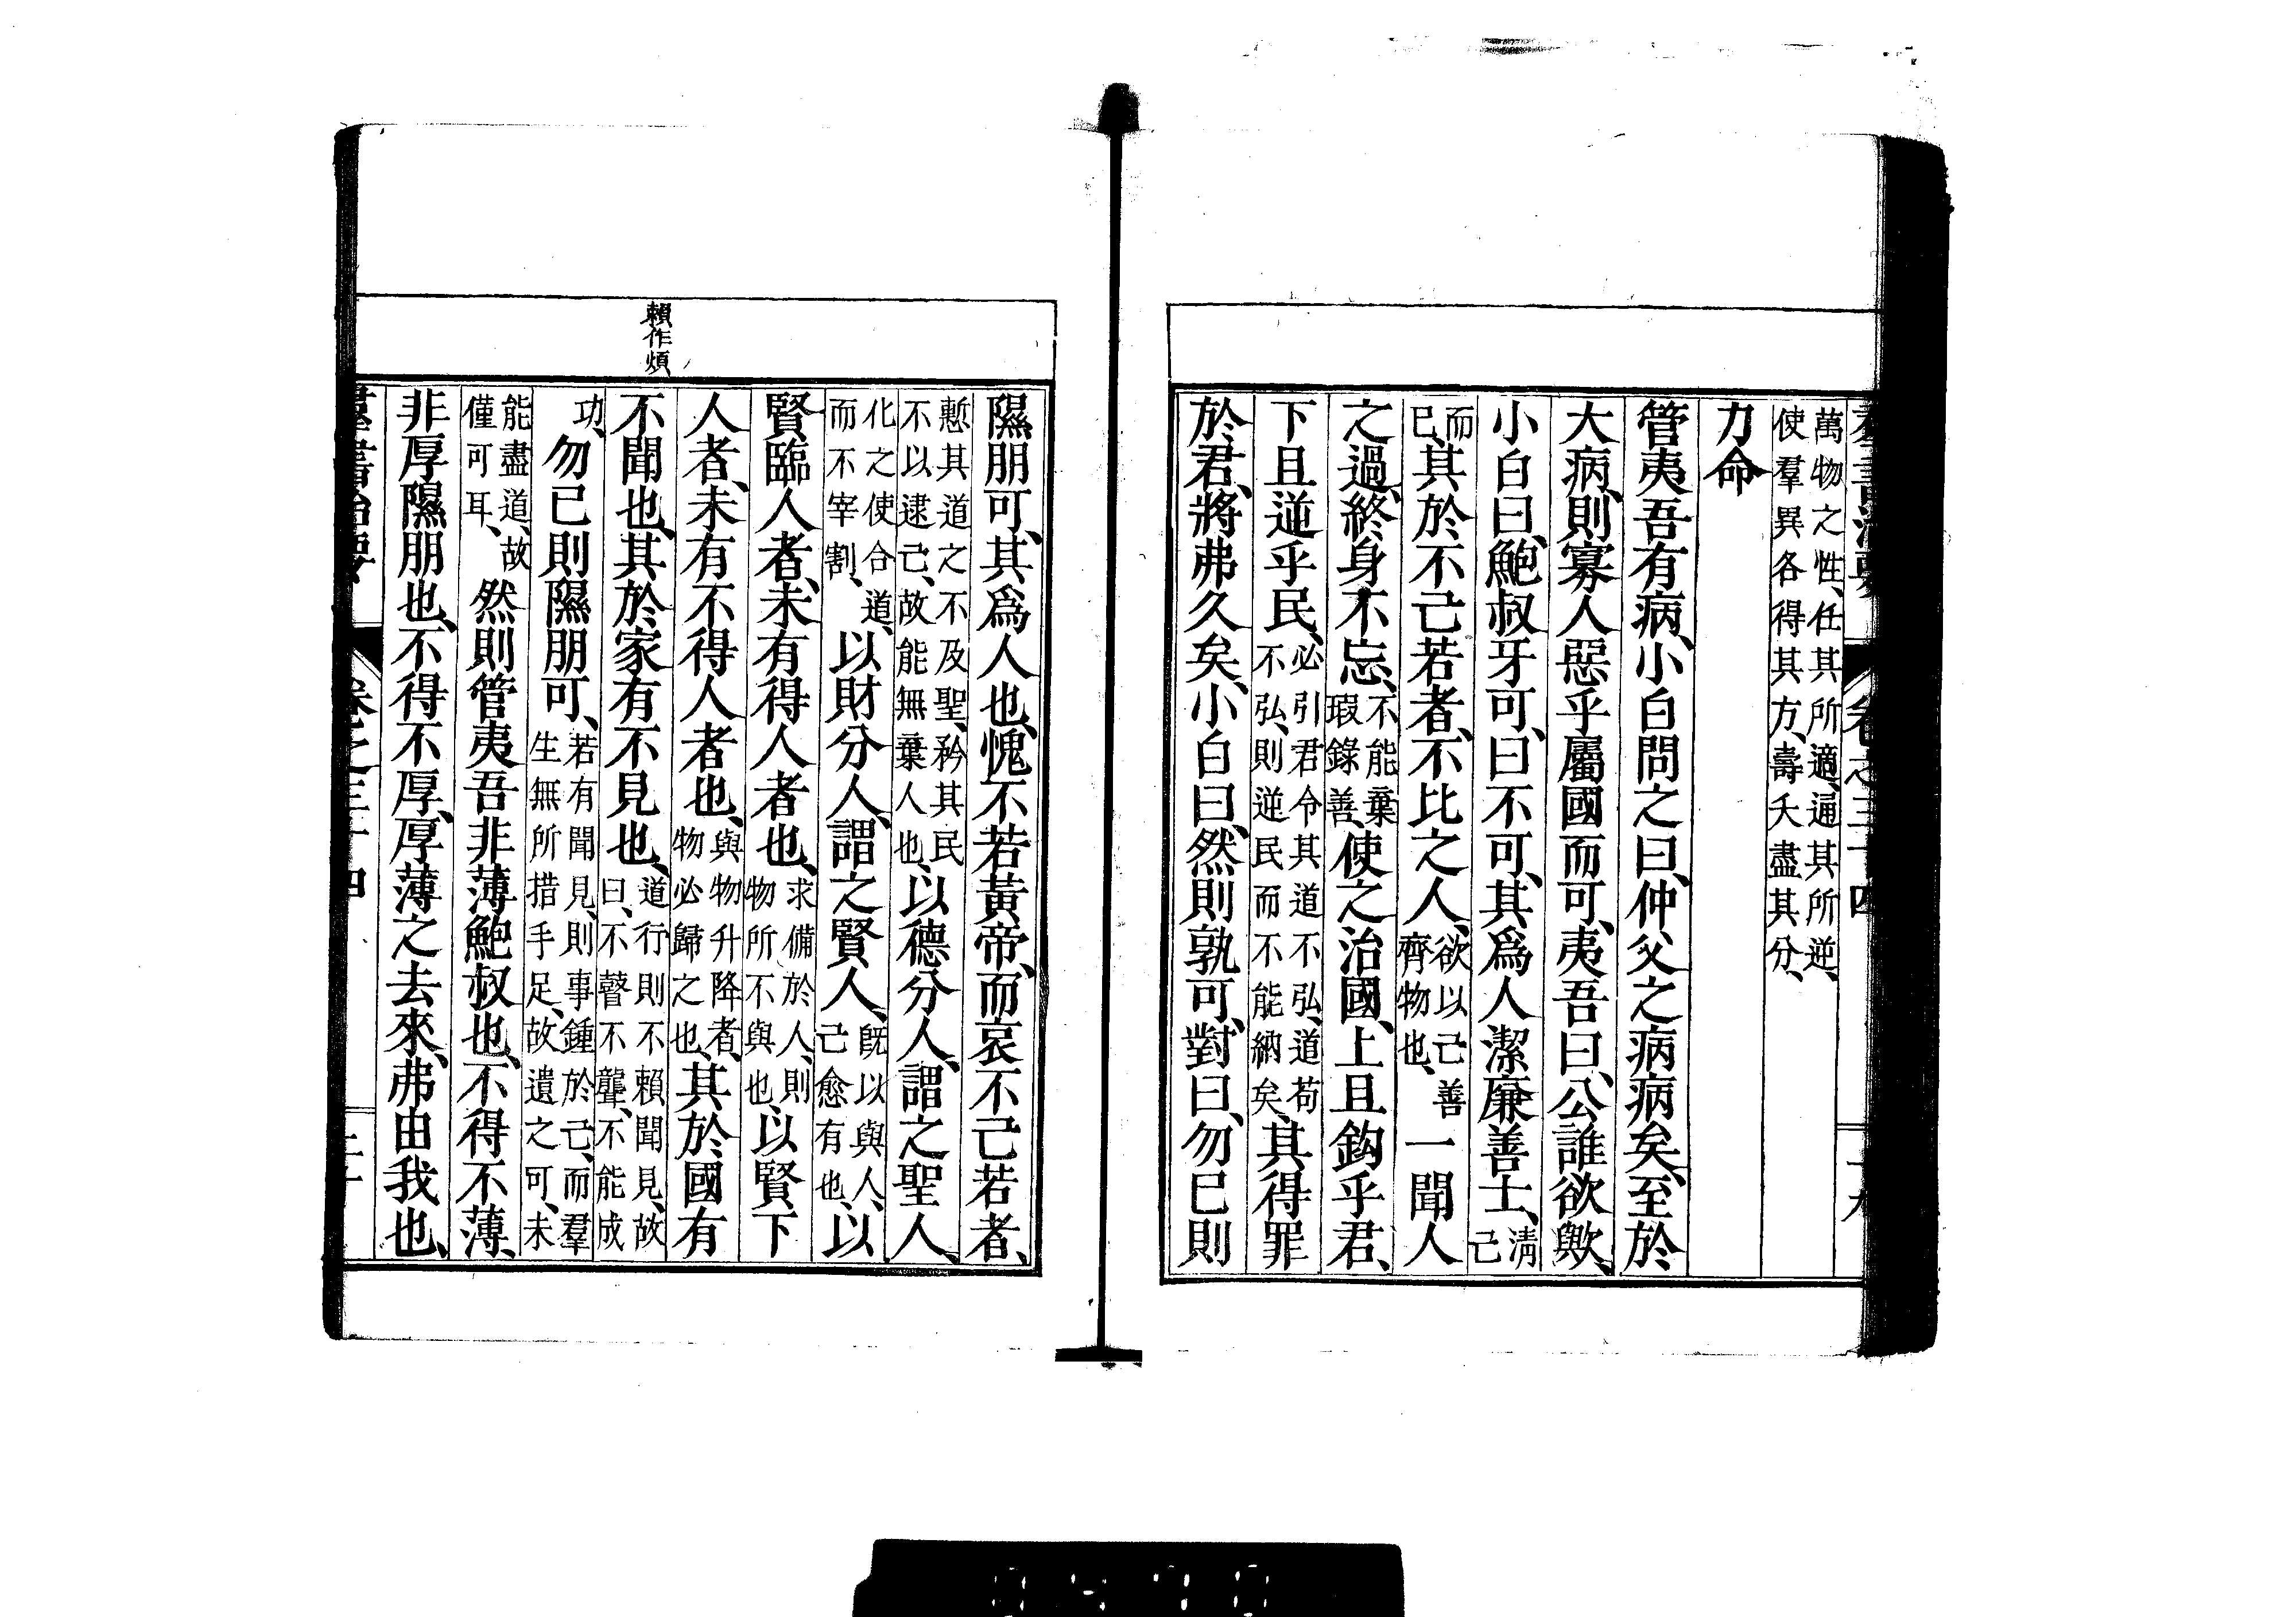 羣書治要 卷之三十四 十九
萬物之性、任其所適、通其所逆、
使羣異各得其方、壽夭盡其分、
力命
管夷吾有病、小白問之曰、仲父之病病矣、至於
大病、則寡人惡乎屬國而可、夷吾曰、公誰欲歟、
小白曰、鮑叔牙可、曰不可、其爲人潔廉善士、淸己
而已、其於不己若者、不比之人、欲以己善齊物也、一聞人
之過、終身不忘、不能棄瑕錄善、使之治國、上且鈎乎君、
下且逆乎民、必引君令其道不弘、道苛不弘、則逆民而不能納矣、其得罪
於君、將弗久矣、小白曰、然則孰可、對曰、勿已則
賴作煩
隰朋可、其爲人也、愧不若黃帝、而哀不己若者、
慙其道之不及聖、矜其民不以逮己、故能無棄人也、以德分人、謂之聖人、
化之使合道、而不宰割、以財分人、謂之賢人、旣以與人、己愈有也、以
賢臨人者、未有得人者也、求備於人、則物所不與也、以賢下
人者、未有不得人者也、與物升降者、物必歸之也、其於國有
不聞也、其於家有不見也、道行則不賴聞見、故曰、不瞽不聾、不能成
功、勿已則隰朋可、若有聞見、則事鍾於己、而羣生無所措手足、故遺之可、未
能盡道、故僅可耳、然則管夷吾非薄鮑叔也、不得不薄、
非厚隰朋也、不得不厚、厚薄之去來、弗由我也、
羣書治要 卷之三十四